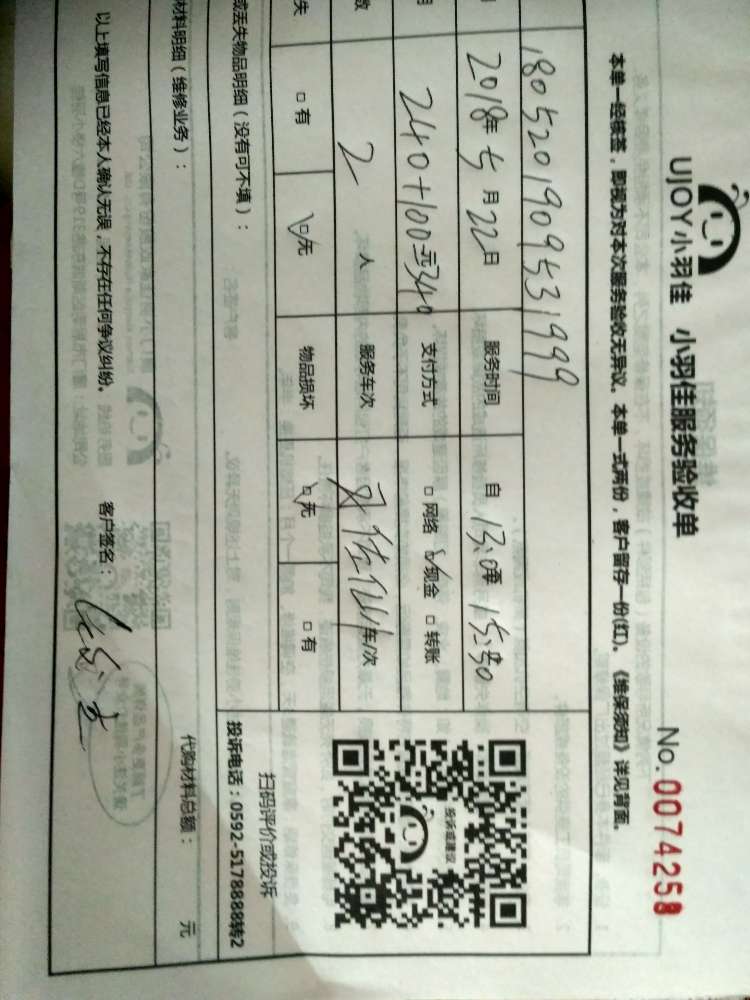 UJOY小羽佳 小羽佳服务验收单
No. 0074258
本单一经核签，即视为对本次服务验收无异议。本单一式两份，客户留存一份(红)。《维保须知》详见背面。
1805201909531999
2018年5月22日 服务时间 自13:0 15:30
240+100元340 支付方式 □网络 □现金 □转账
2人 服务车次 车/次
失 □有 □无 物品损坏 □无 □有
投诉或建议
扫码评价或投诉
投诉电话：0592-5178888转2
或丢失物品明细（没有可不填）：
材料明细（维修业务）： 代购材料总额： 元
以上填写信息已经本人确认无误，不存在任何争议纠纷。 客户签名：